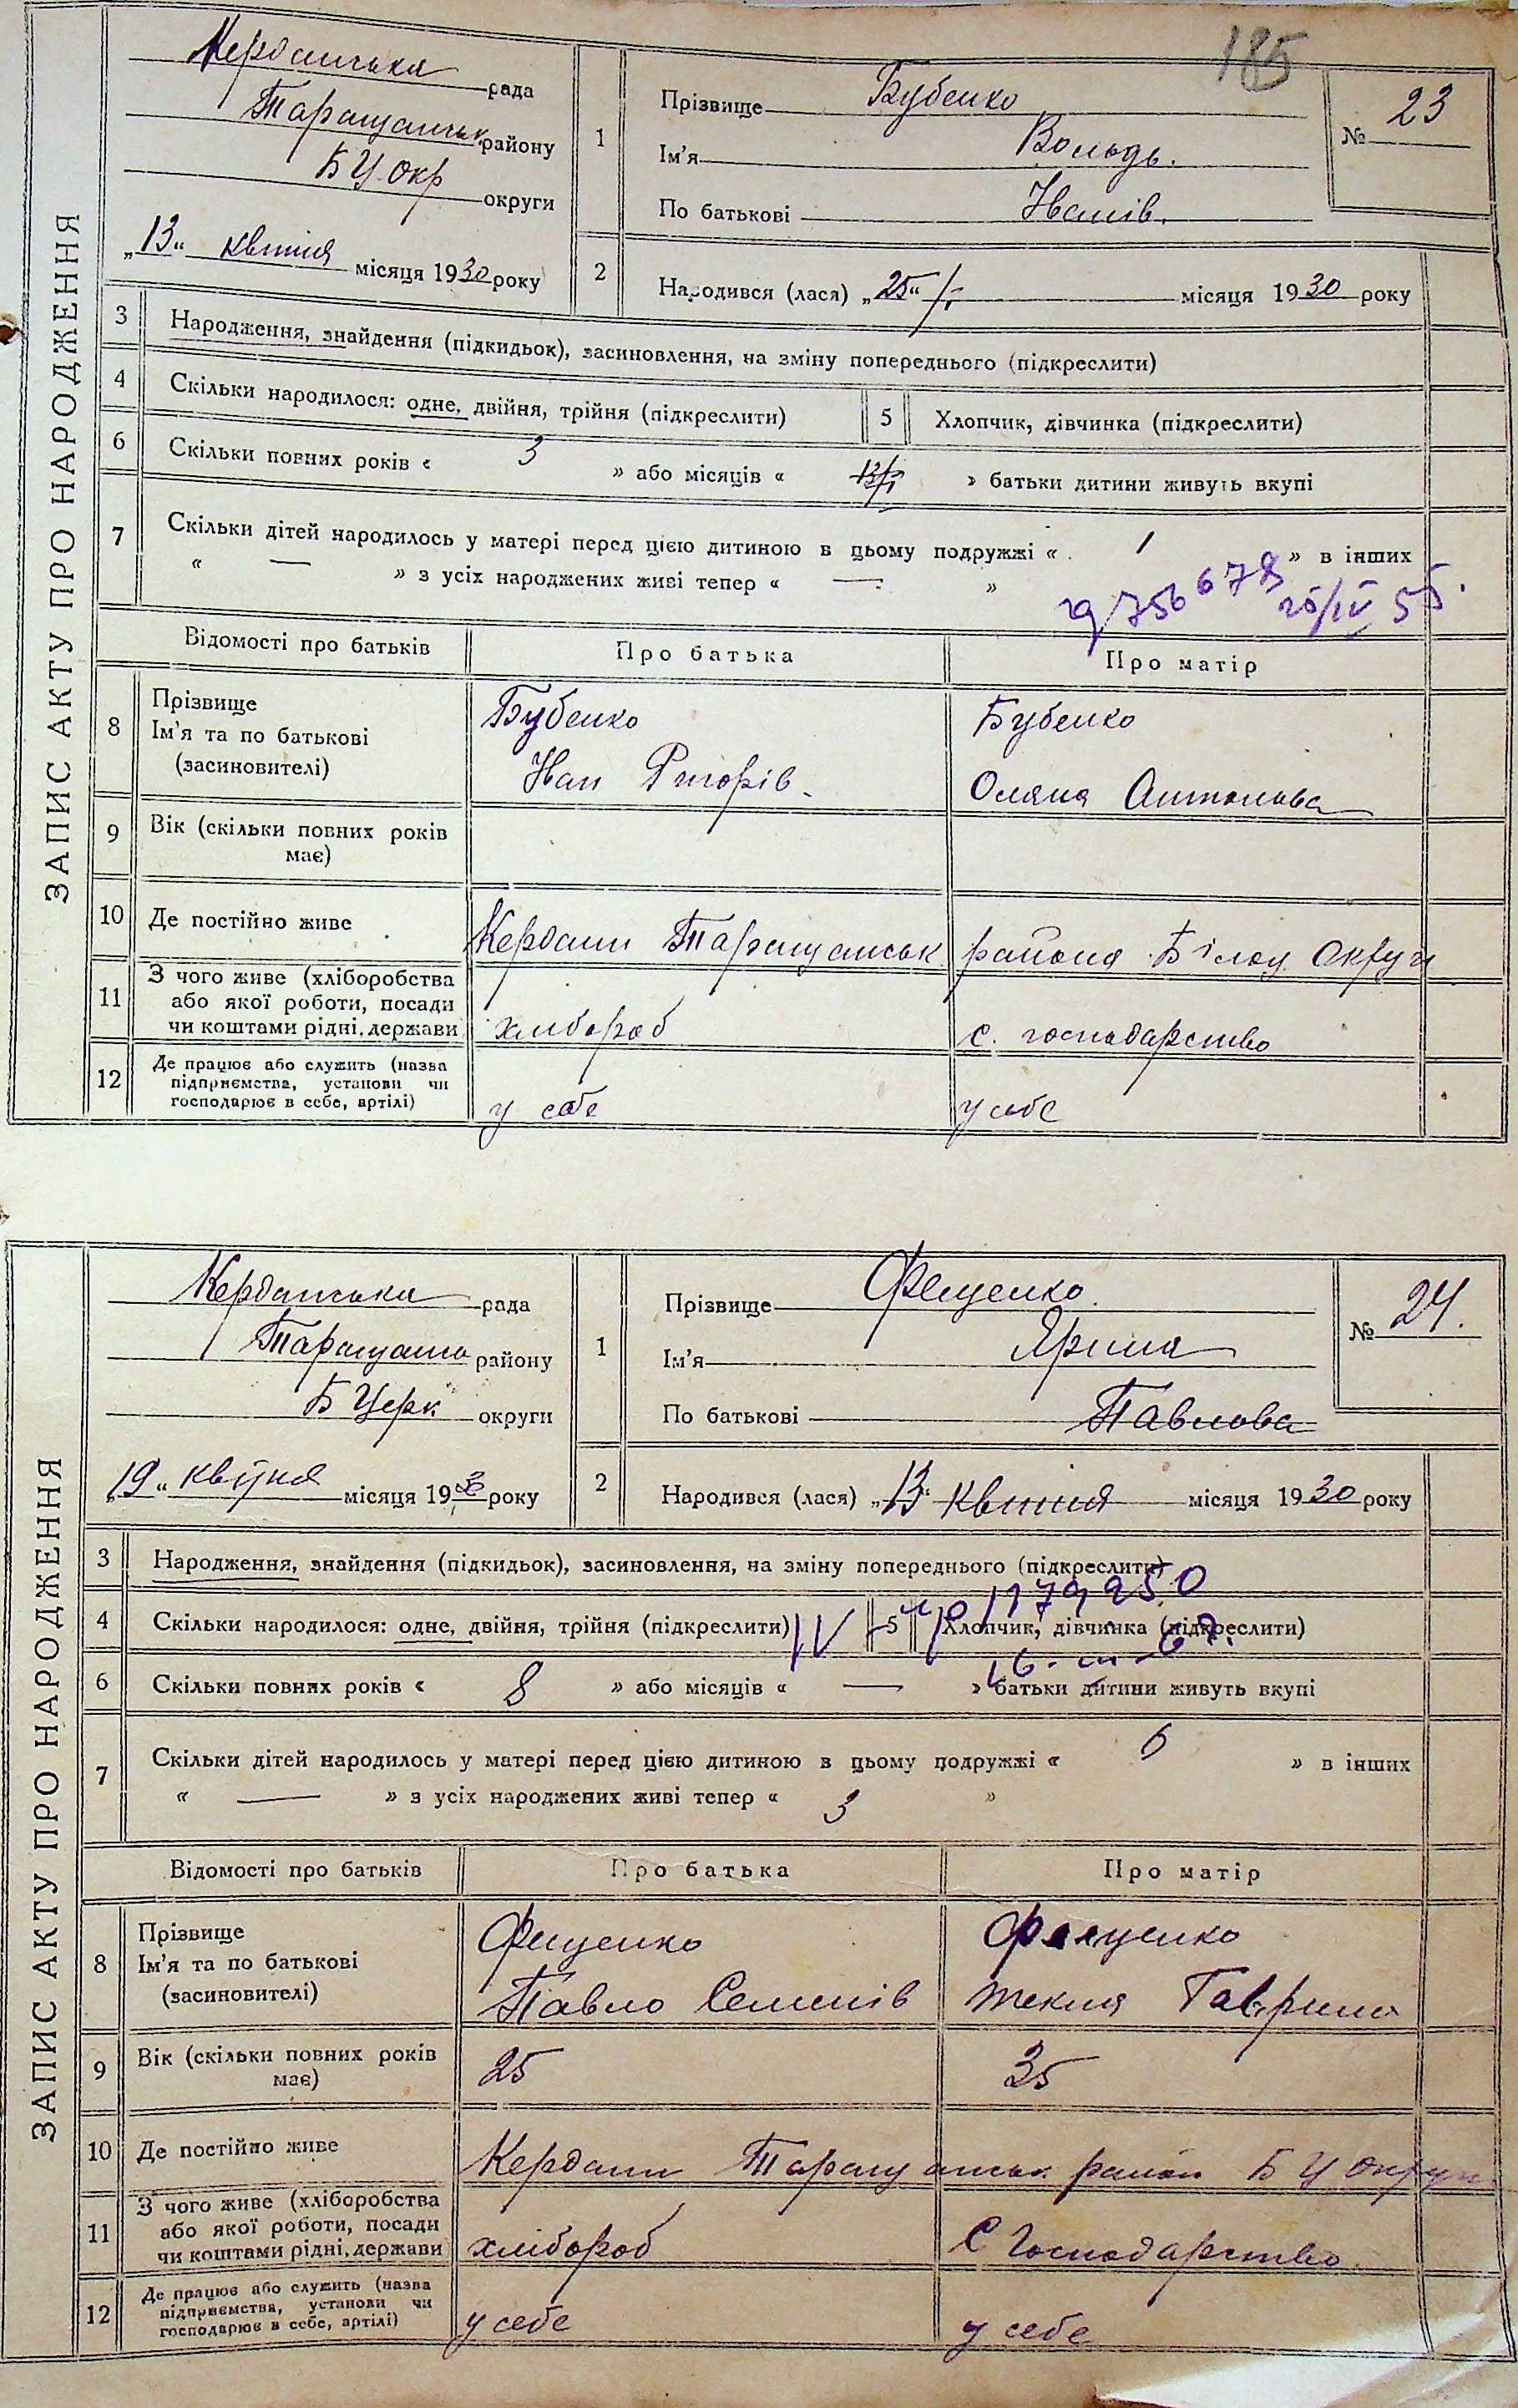 185
ЗАПИС АКТУ ПРО НАРОДЖЕННЯ
Керданська рада
Таращанськ району
БЦ Окр округи
„13“ квітня місяця 1930 року
1
Прізвище Бубенко
Ім'я Володь.
По батькові Іванів.
№ 23
2
Народився (лася) „25“ місяця 1930 року
3 Народження, знайдення (підкидьок), засиновлення, на зміну попереднього (підкреслити)
4 Скільки народилося: одне, двійня, трійня (підкреслити) 5 Хлопчик, дівчинка (підкреслити)
6 Скільки повних років « 3 » або місяців « » батьки дитини живуть вкупі
7 Скільки дітей народилось у матері перед цією дитиною в цьому подружжі « 1 » в інших
« — » з усіх народжених живі тепер « — »
756678
25/IV 55.
Відомості про батьків Про батька Про матір
8 Прізвище
Ім'я та по батькові
(засиновителі)
Бубенко
Іван Григорів.
Бубенко
Оляна Антонова
9 Вік (скільки повних років
має)
10 Де постійно живе Кердани Таращанськ района Білоц. Округи
11 З чого живе (хліборобства
або якої роботи, посади
чи коштами рідні, держави
хлібороб с. господарство
12 Де працює або служить (назва
підприємства, установи чи
господарює в себе, артілі)
у себе у себе
ЗАПИС АКТУ ПРО НАРОДЖЕННЯ
Керданська рада
Таращансь району
Б Церк округи
„19“ квітня місяця 1930 року
1
Прізвище Фещенко
Ім'я Ярина
По батькові Павлова
№ 24.
2
Народився (лася) „13“ Квітня місяця 1930 року
3 Народження, знайдення (підкидьок), засиновлення, на зміну попереднього (підкреслити)
4 Скільки народилося: одне, двійня, трійня (підкреслити) 5 Хлопчик, дівчинка (підкреслити)
6 Скільки повних років « 8 » або місяців « — » батьки дитини живуть вкупі
7 Скільки дітей народилось у матері перед цією дитиною в цьому подружжі « 6 » в інших
« — » з усіх народжених живі тепер « 3 »
Відомості про батьків Про батька Про матір
8 Прізвище
Ім'я та по батькові
(засиновителі)
Фещенко
Павло Семенів
Фещенко
Текля Гаврила
9 Вік (скільки повних років
має)
25 35
10 Де постійно живе Кердани Таращанськ район Б Ц Округи
11 З чого живе (хліборобства
або якої роботи, посади
чи коштами рідні, держави
хлібороб С Господарство
12 Де працює або служить (назва
підприємства, установи чи
господарює в себе, артілі)
у себе у себе